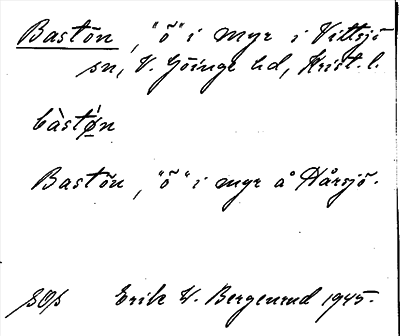 Bastön, "ö" i myr i Vittsjö
sn, V. Göinge hd, Krist. l.
bàstǿn
Bastön, "ö" i myr å Hårsjö.
sOp Erik W. Bergenrud 1945.